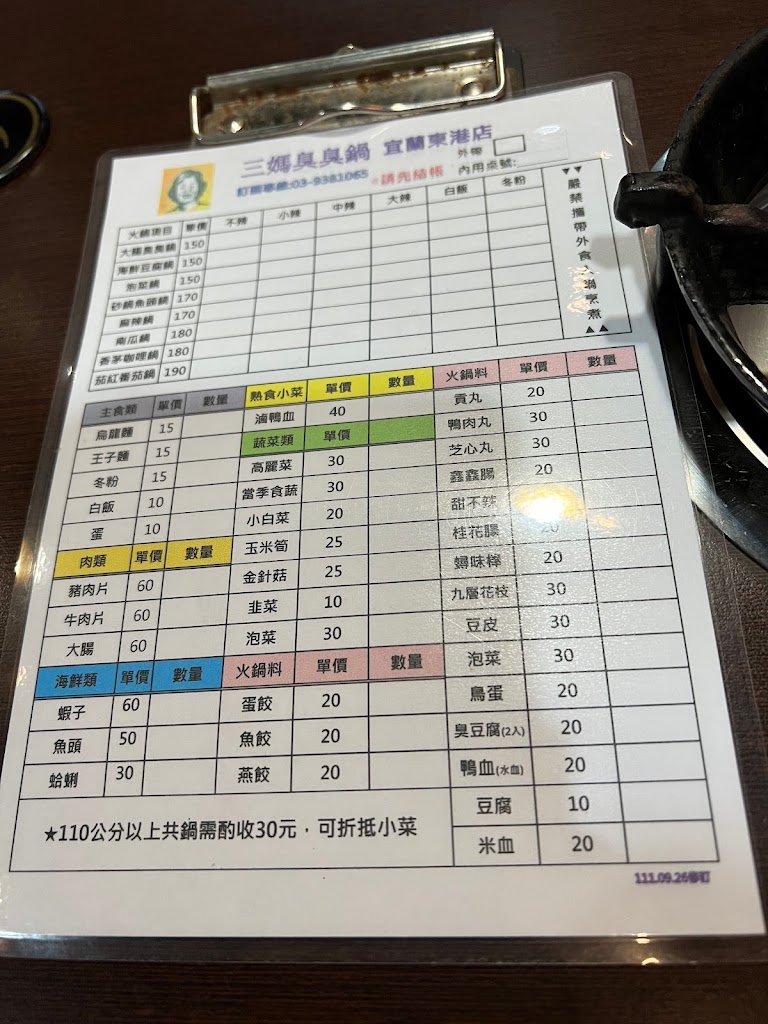 三媽臭臭鍋 宜蘭東港店
外帶
訂購專線:03-9381065 *請先結帳 內用桌號:
火鍋項目 單價 不辣 小辣 中辣 大辣 白飯 冬粉
大腸臭臭鍋 150
海鮮豆腐鍋 150
泡菜鍋 150
砂鍋魚頭鍋 170
麻辣鍋 170
南瓜鍋 180
香茅咖哩鍋 180
茄紅番茄鍋 190
▼▼嚴禁攜帶外食入鍋烹煮▲▲
主食類 單價 數量
烏龍麵 15
王子麵 15
冬粉 15
白飯 10
蛋 10
肉類 單價 數量
豬肉片 60
牛肉片 60
大腸 60
海鮮類 單價 數量
蝦子 60
魚頭 50
蛤蜊 30
熟食小菜 單價 數量
滷鴨血 40
蔬菜類 單價
高麗菜 30
當季食蔬 30
小白菜 20
玉米筍 25
金針菇 25
韭菜 10
泡菜 30
火鍋料 單價 數量
蛋餃 20
魚餃 20
燕餃 20
火鍋料 單價 數量
貢丸 20
鴨肉丸 30
芝心丸 30
鑫鑫腸 20
甜不辣
桂花腸 20
蟳味棒 20
九層花枝 30
豆皮 30
泡菜 30
鳥蛋 20
臭豆腐(2入) 20
鴨血(水血) 20
豆腐 10
米血 20
★110公分以上共鍋需酌收30元，可折抵小菜
111.09.26修訂